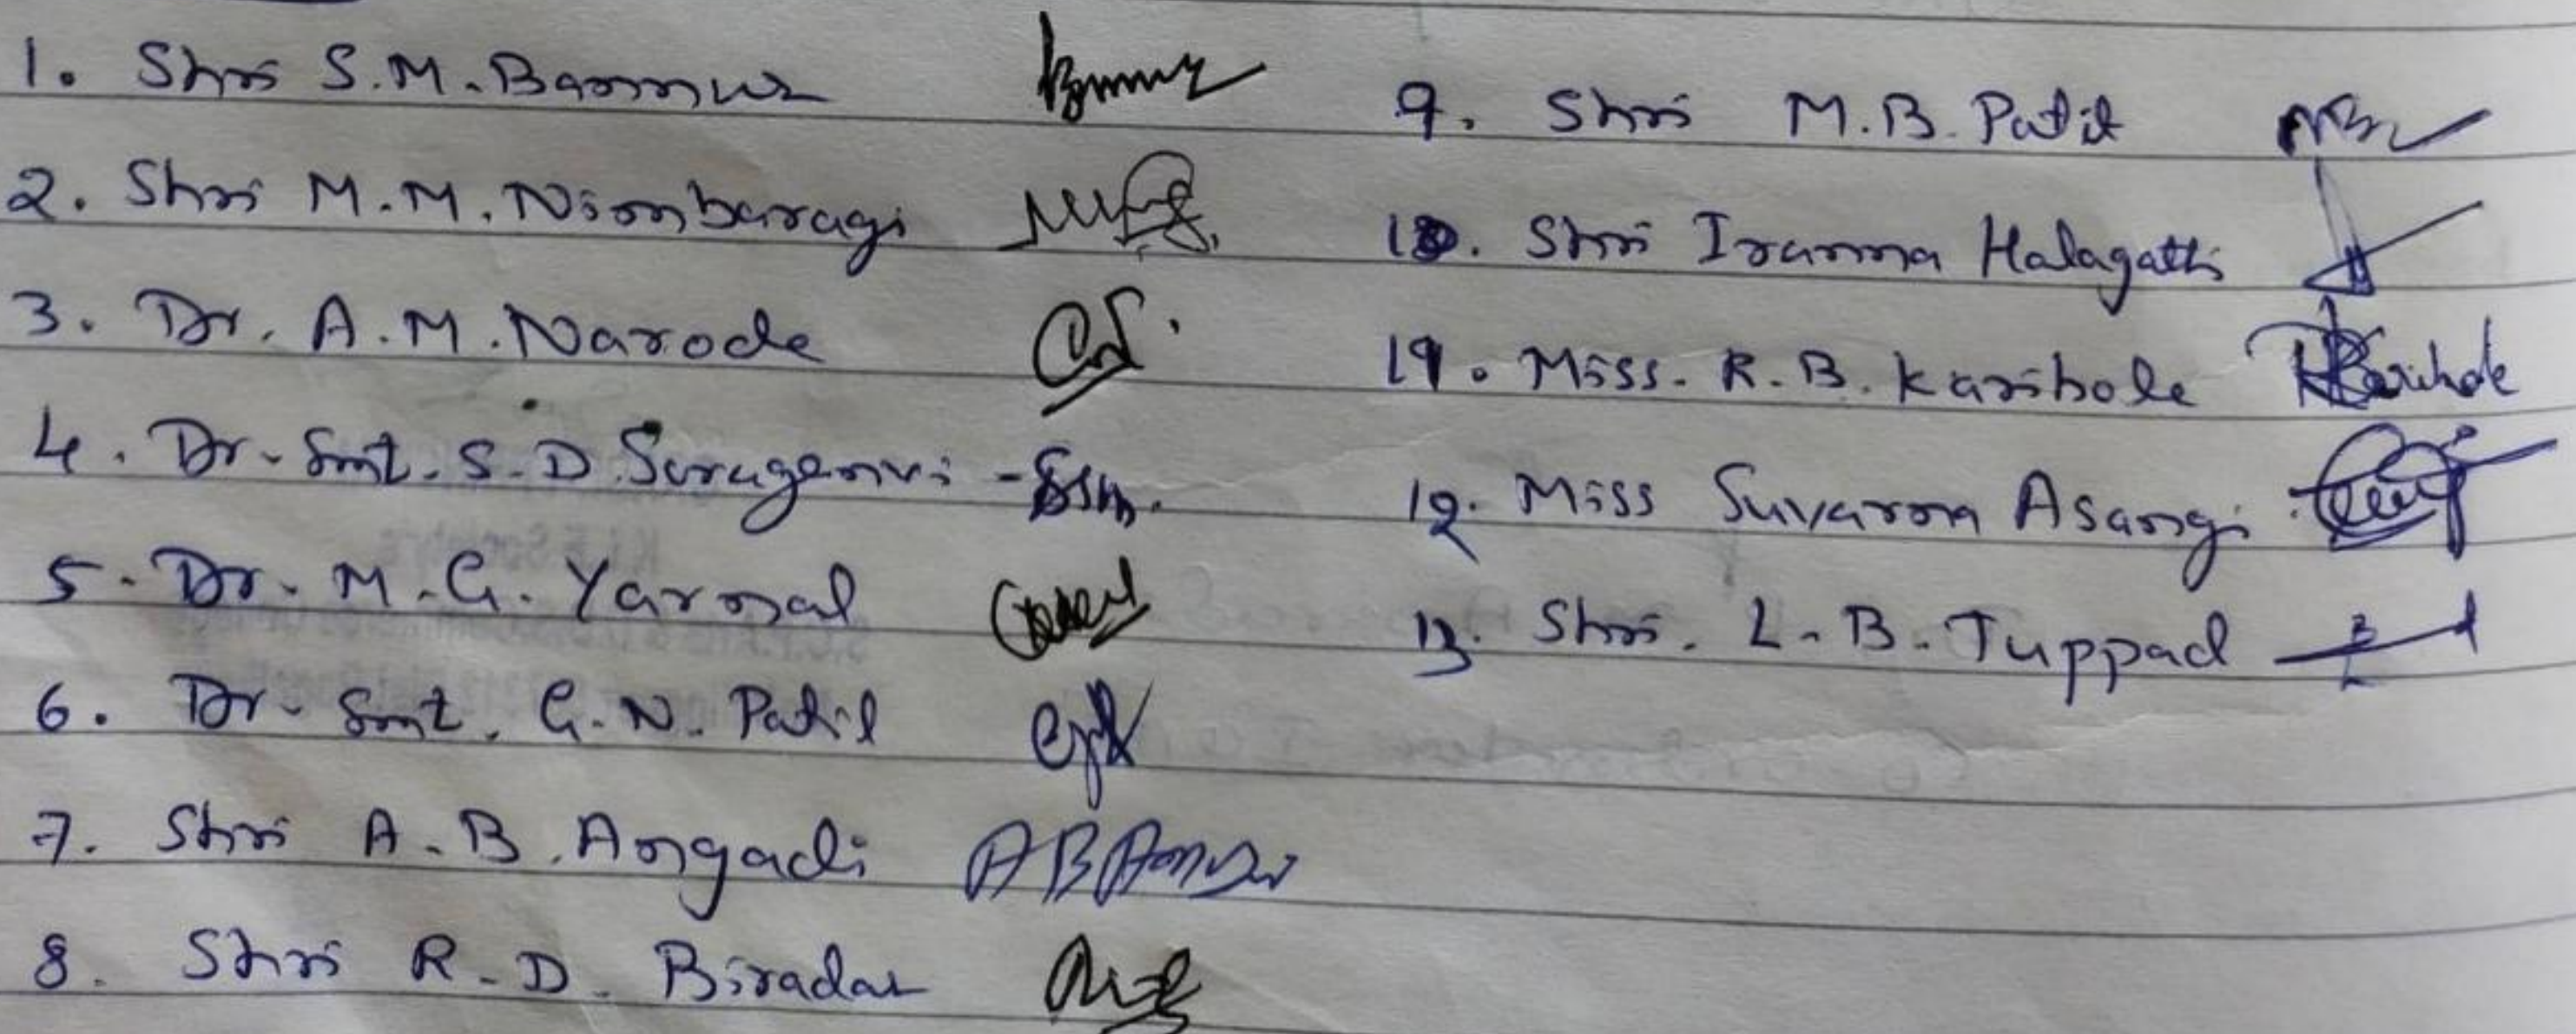 1. Shri S.M. Bannur
2. Shri M.M. Nimbaragi
3. Dr. A.M. Narode
4. Dr. Smt. S.D. Suraganvi
5. Dr. M.G. Yarnal
6. Dr. Smt. G.N. Patil
7. Shri A.B. Angadi
8. Shri R.D. Biradar
9. Shri M.B. Patil
10. Shri Iranna Halagatti
11. Miss. R.B. Karihole
12. Miss Suvarna Asangi
13. Shri. L.B. Tuppad